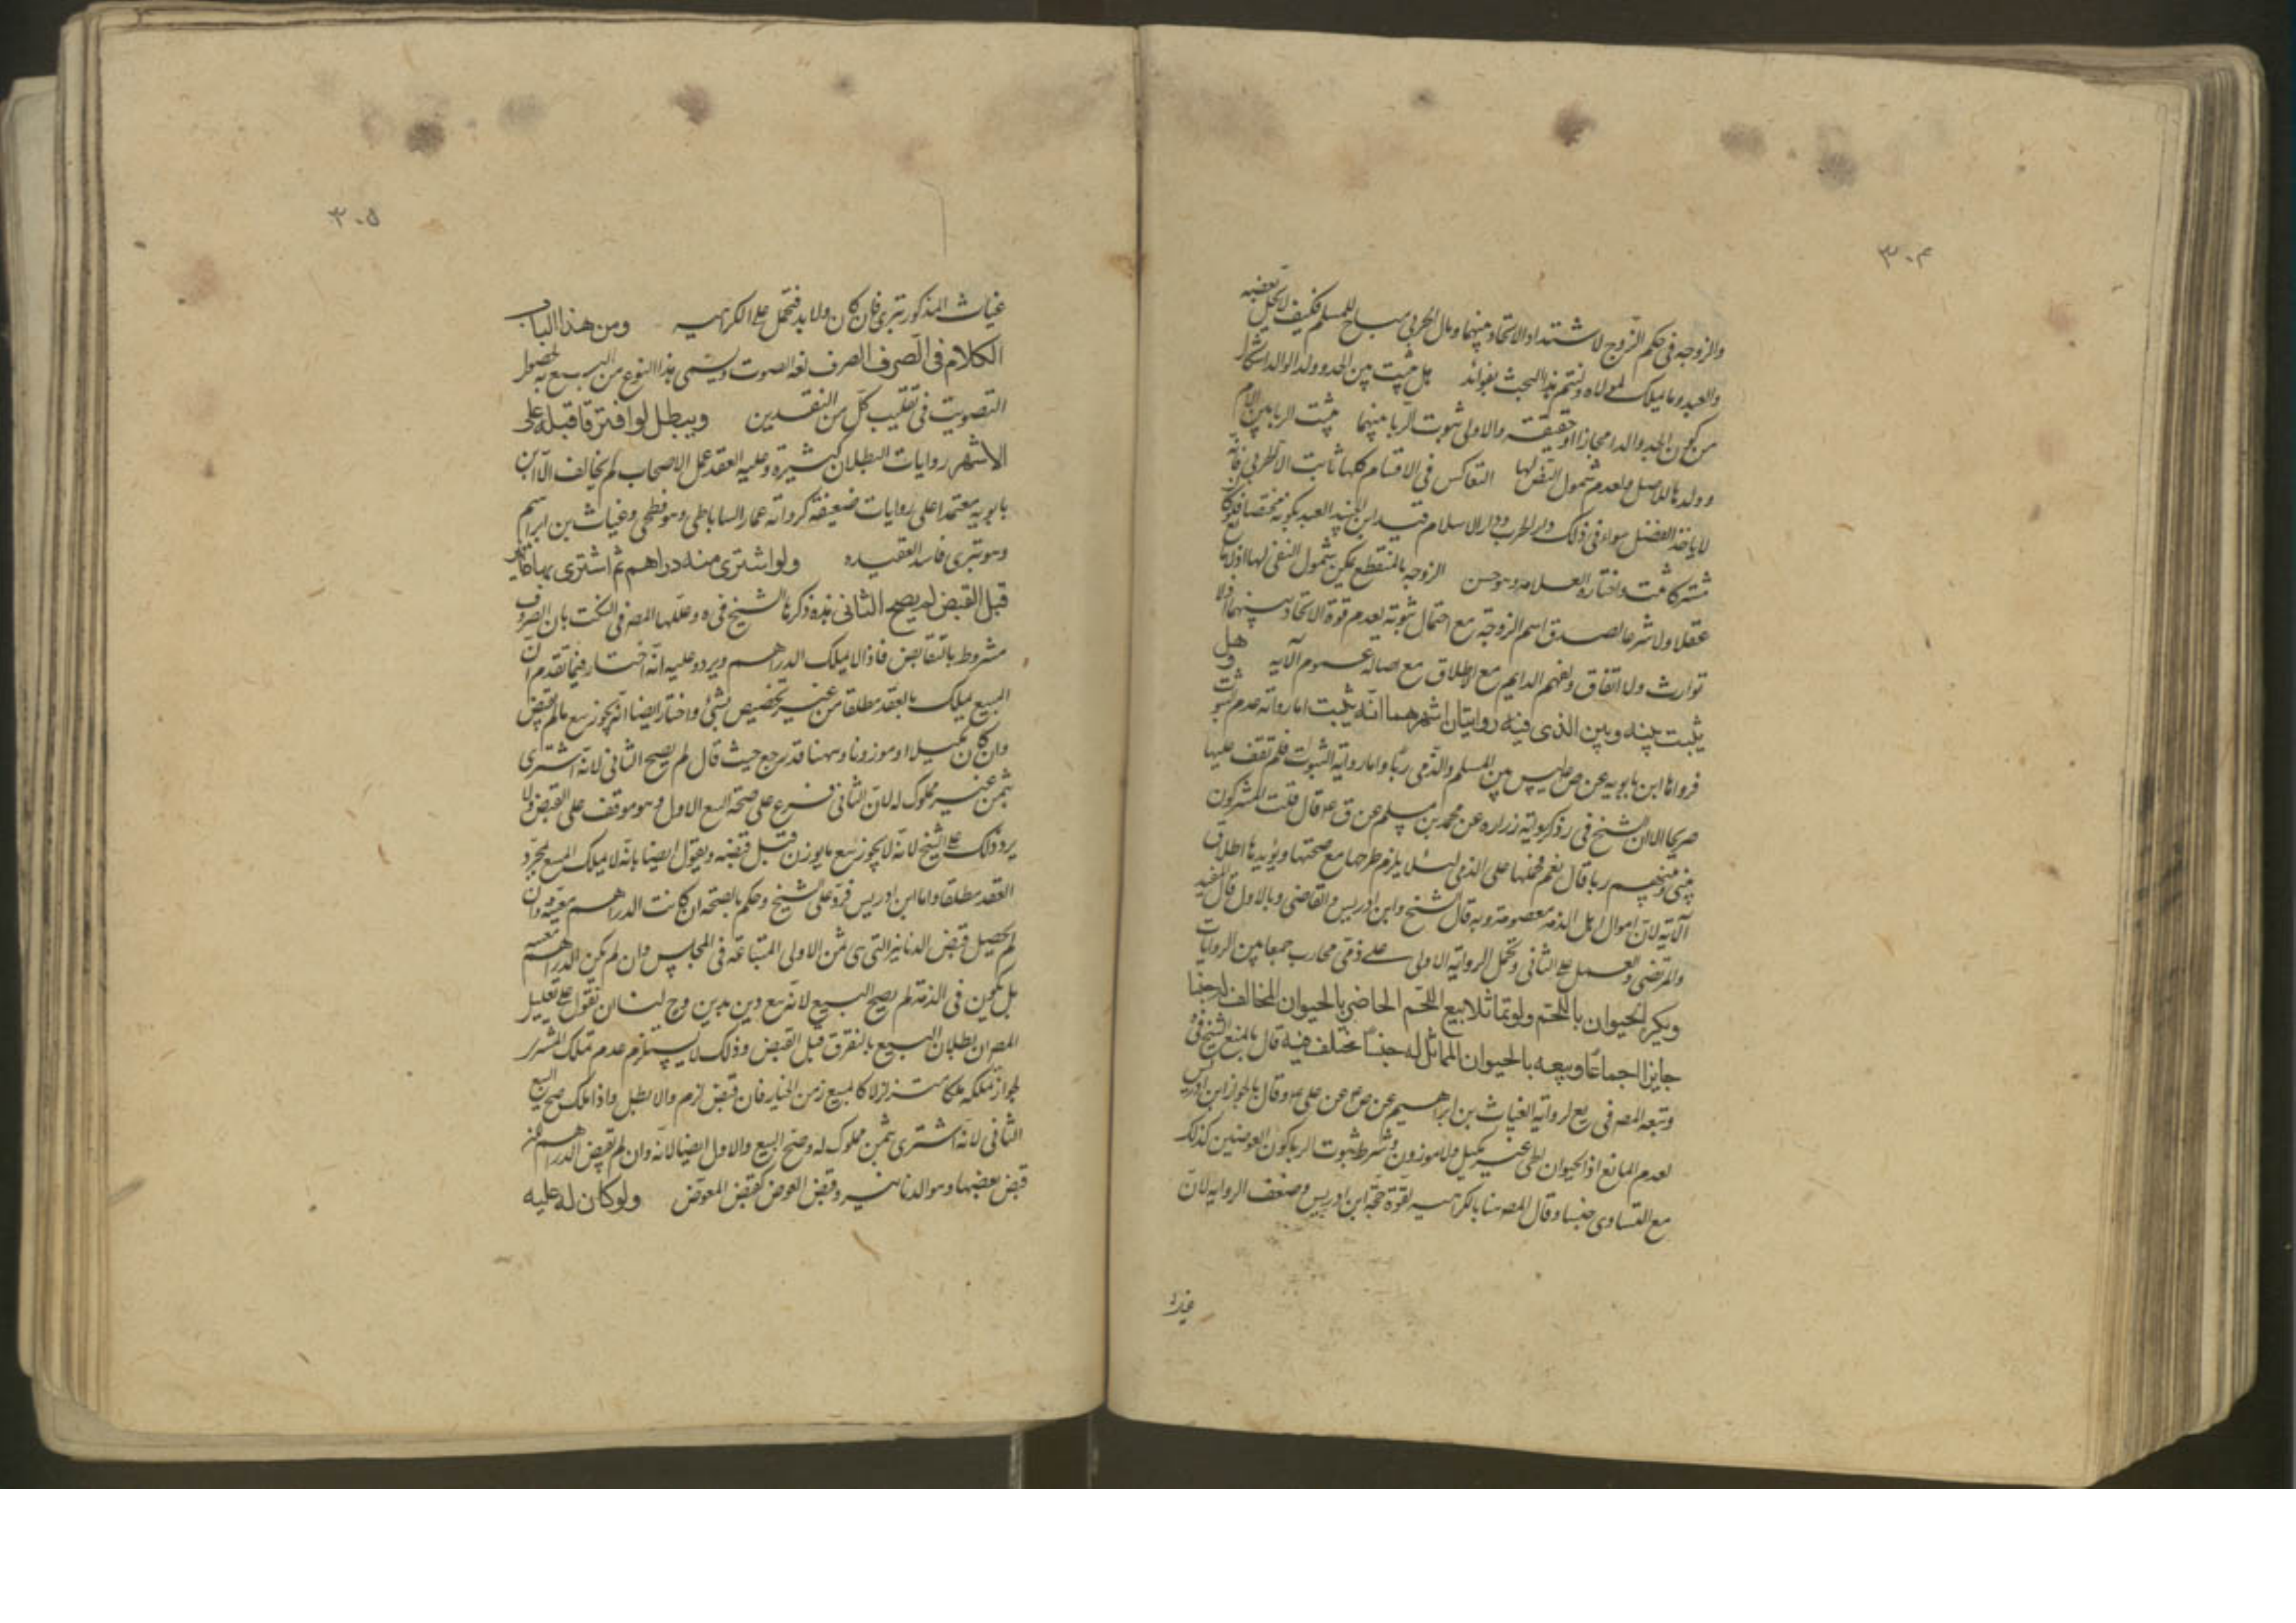 ٣٠٤
والزوجه في حكم الزوج لاشتداد الاتحاد بينهما ومال الحربي مباح للمسلم فكيف لا يحل بعضه
والعبد وما يملك لمولاه ولنتم هذا البحث بفوائد هل يثبت بين الجد وولد الولد اشكال
من كون الجد والدا مجازا او حقيقة والاولى ثبوت الربا بينهما يثبت الربا بين الام
وولدها للاصل ولعدم شمول النص لها التعاكس في الاقسام كلها ثابت الا الحربي فانه
لا ياخذ الفضل سواء في ذلك دار الحرب ودار الاسلام قيد ابن الجنيد العبد بكونه مختصا فلو كان
مشتركا ثبت واختاره العلامه وهو حسن الزوجه بالمنقطع يمكن شمول النفي لها اذ لا مانع
عقلا ولا شرعا لصدق اسم الزوجة مع احتمال ثبوته لعدم قوة الاتحاد بينهما اذ لا
توارث ولا انفاق ولفهم الدايم مع الاطلاق مع اصالة عموم الآيه وهل
يثبت بينه وبين الذمي فيه روايتان اشهرهما انه يثبت اما رواية عدم ثبوت
فرواها ابن بابويه عن ص ليس بين المسلم والذمي ربا واما رواية الثبوت فلم نقف عليها
صريحا الا ان الشيخ في رواية زراره عن محمد بن مسلم عن ق ع قال قلت المشركون
بيني وبينهم ربا قال نعم فحملها على الذمي لئلا يلزم طرحها مع صحتها ويؤيدها اطلاق
الآية لان اموال اهل الذمه معصومة وبه قال الشيخ وابن ادريس والقاضي وبالاول قال المفيد
والمرتضى والعمل على الثاني وتحمل الرواية الاولى على ذمي محارب جمعا بين الروايات
ويكره الحيوان باللحم ولو تماثلا بيع اللحم الحاضر بالحيوان المخالف له جنسا
جايز اجماعا وبيعه بالحيوان المماثل له جنسا مختلف فيه قال بالمنع الشيخ في
وتبعه المصه في يع لرواية الغياث بن ابراهيم عن ص عن علي ع وقال بالجواز ابن ادريس
لعدم المانع اذ الحيوان الحي غير مكيل ولا موزون وشرط ثبوت الربا كون العوضين كذلك
مع التساوي جنسا وقال المصه هنا بالكراهيه لقوة حجة ابن ادريس وضعف الروايه لان
غياث
٣٠٥
غياث المذكور بتري فان كان ولا بد فتحمل على الكراهيه ومن هذا الباب
الكلام في الصرف الصرف لغة الصوت ويسمى هذا النوع من البيع به لحصول
التصويت في تقليب كل من النقدين ويبطل لو افترقا قبله على
الاشهر روايات البطلان كثيرة وعليه انعقد عمل الاصحاب لم يخالف الا ابن
بابويه معتمدا على روايات ضعيفة كرواية عمار الساباطي وهو فطحي وغياث بن ابراهيم
وهو بتري فاسد العقيده ولو اشترى منه دراهم ثم اشترى بها دنانير
قبل القبض لم يصح الثاني هذه ذكرها الشيخ في يه وعللها المصه في النكت بان الصرف
مشروط بالتقابض فاذا لا يملك الدراهم ويرد عليه انه اختار فيما تقدم ان
المبيع يملك بالعقد مطلقا من غير تخصيص بشئ واختار ايضا انه يجوز بيع ما لم يقبض
وان كان مكيلا او موزونا وههنا قد رجع حيث قال لم يصح الثاني لانه اشترى
بثمن غير مملوك له لان الثاني فرع على صحة البيع الاول وهو موقف على القبض ولا
يرد ذلك على الشيخ لانه لا يجوز بيع ما يوزن قبل قبضه ويقول ايضا بانه لا يملك المبيع بمجرد
العقد مطلقا واما ابن ادريس فرد على الشيخ وحكم بالصحه ان كانت الدراهم معينة وان
لم يحصل قبض الدنانير التي هي ثمن الاولى المبتاعة في المجلس وان لم يكن الدراهم معينه
بل يكون في الذمة لم يصح البيع لانه بيع دين بدين وح لنا ان نقول على تعليل
المصه ان بطلان البيع بالتفرق قبل القبض وذلك لا يستلزم عدم تملك المشتري
لجواز تملكه ملكا متزلزلا كالمبيع زمن الخيار فان قبض لزم والا بطل واذا ملك صح البيع
الثاني لانه اشترى بثمن مملوك له وصح البيع والاول ايضا لانه وان لم يقبض الدراهم فقد
قبض بعضها وهو الدنانير وقبض العوض كقبض المعوض ولو كان له عليه